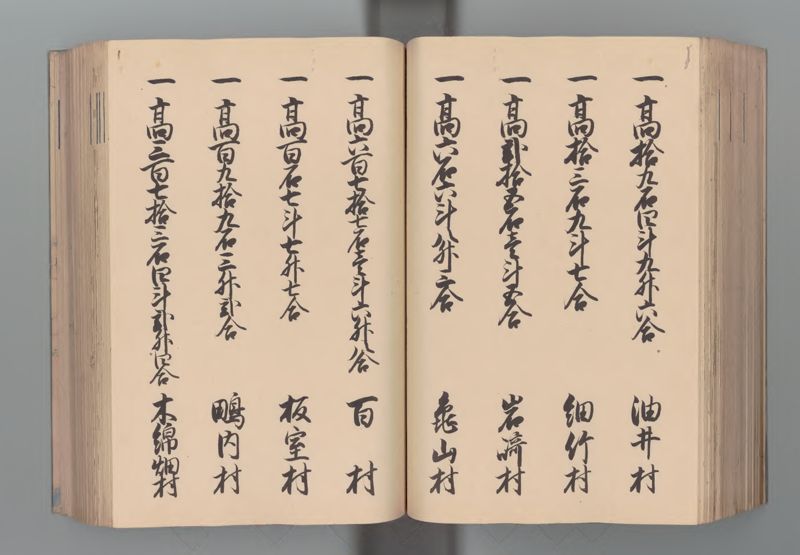 一高拾九石四斗九升六合 油井村
一高拾三石九斗七合 細竹村
一高弐拾五石壱斗五合 岩崎村
一高六石六斗八升三合 亀山村
一高六百七拾七石壱斗六升八合 百村
一高百石七斗七升七合 板室村
一高百九拾九石三升弐合 鴫内村
一高三百七拾三石四斗弐升四合 木綿畑村